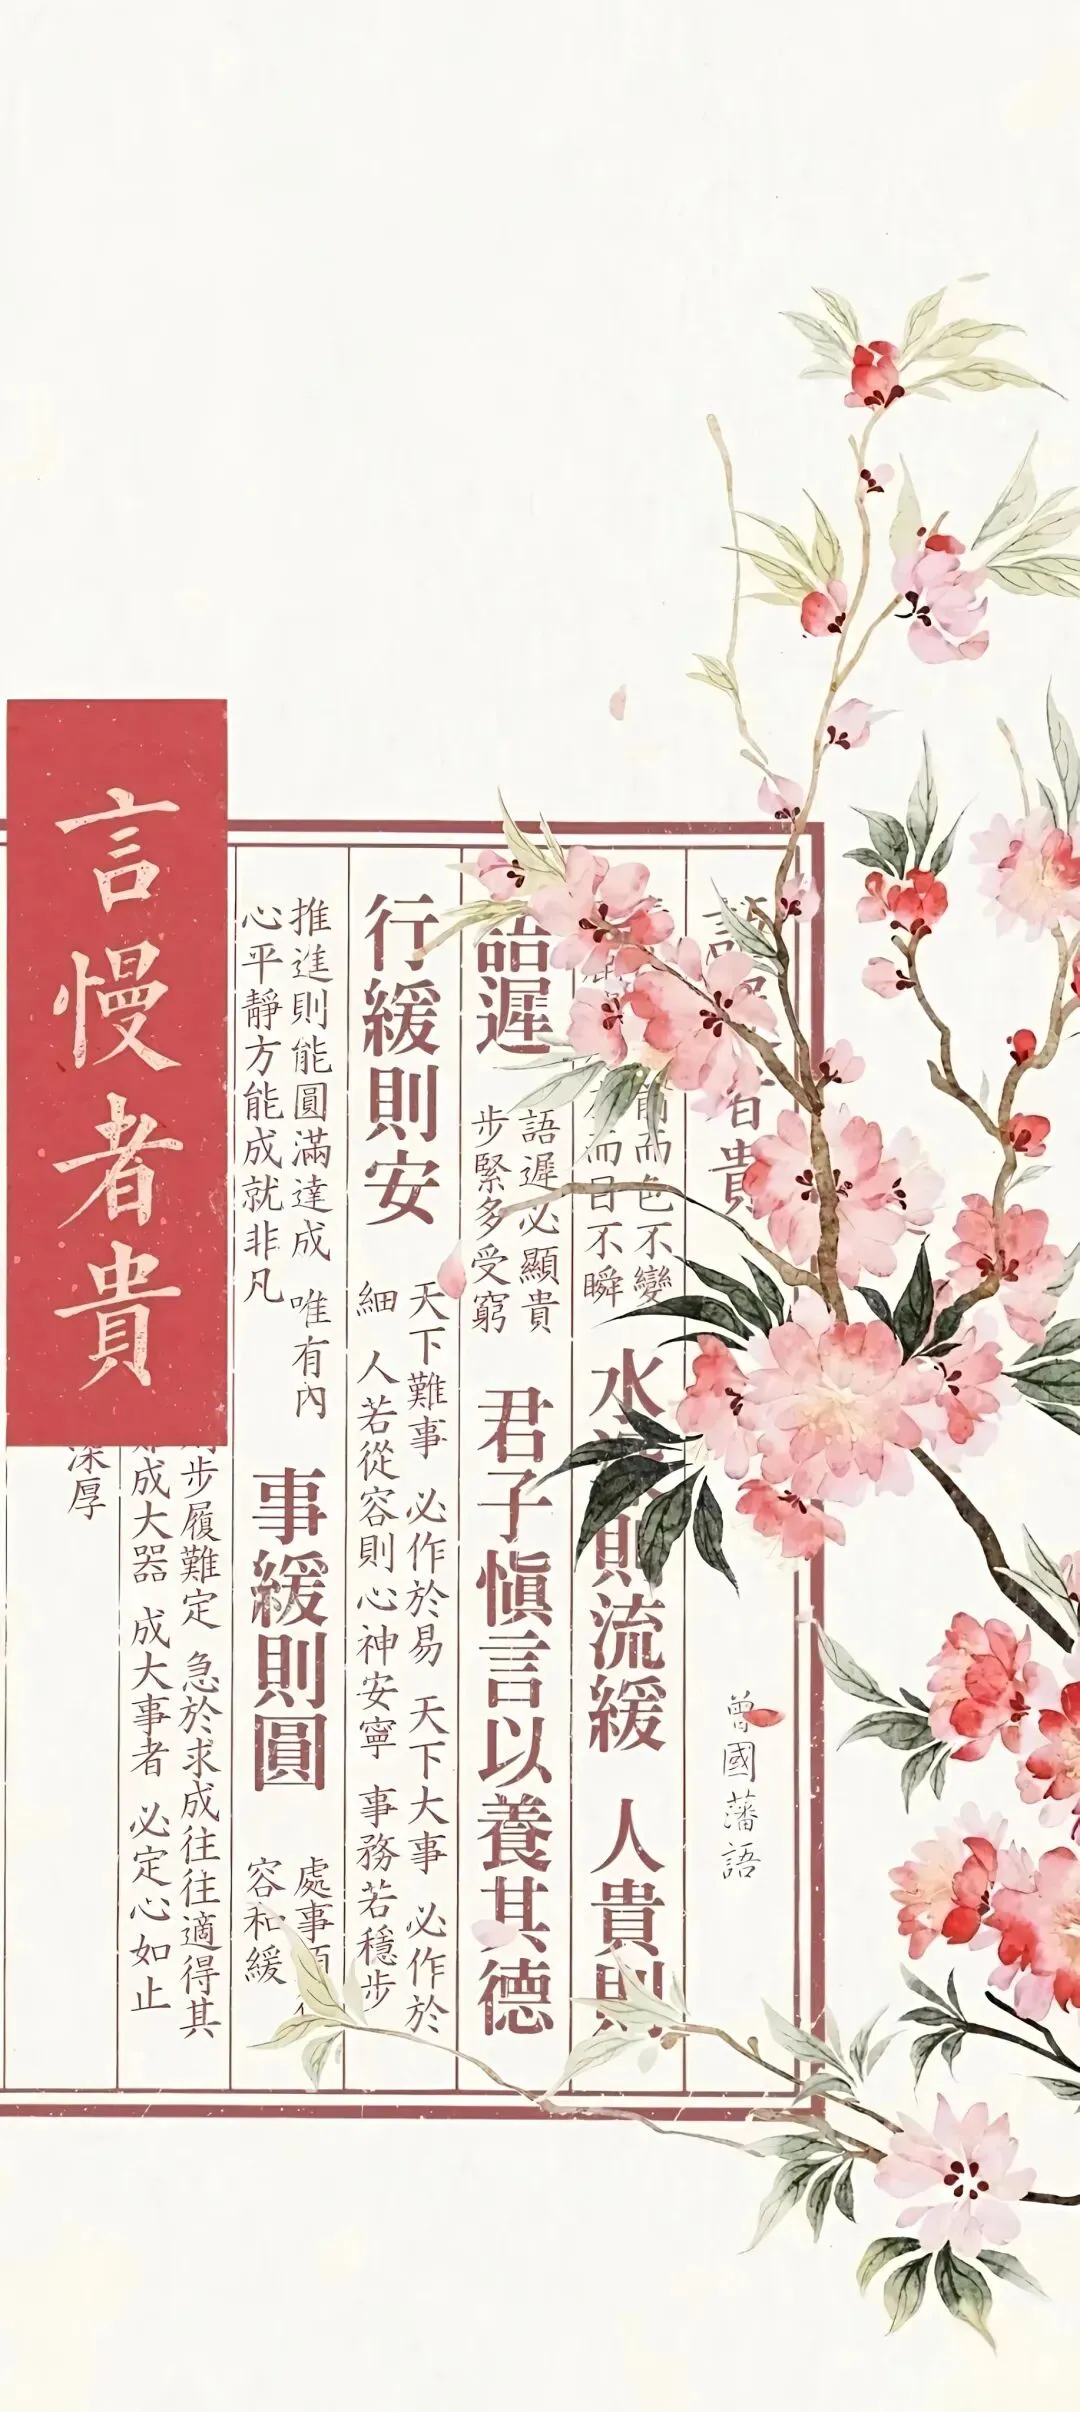 言慢者貴
者貴
曾國藩語
水
則流緩
人貴則
而色不變
而目不瞬
語遲
語遲必顯貴
步緊多受窮
君子慎言以養其德
行緩則安
天下難事 必作於易 天下大事 必作於
細 人若從容則心神安寧 事務若穩步
推進則能圓滿達成 唯有內
心平靜方能成就非凡
事緩則圓
處事
容和緩
步履難定 急於求成往往適得其
成大器 成大事者 必定心如止
深厚